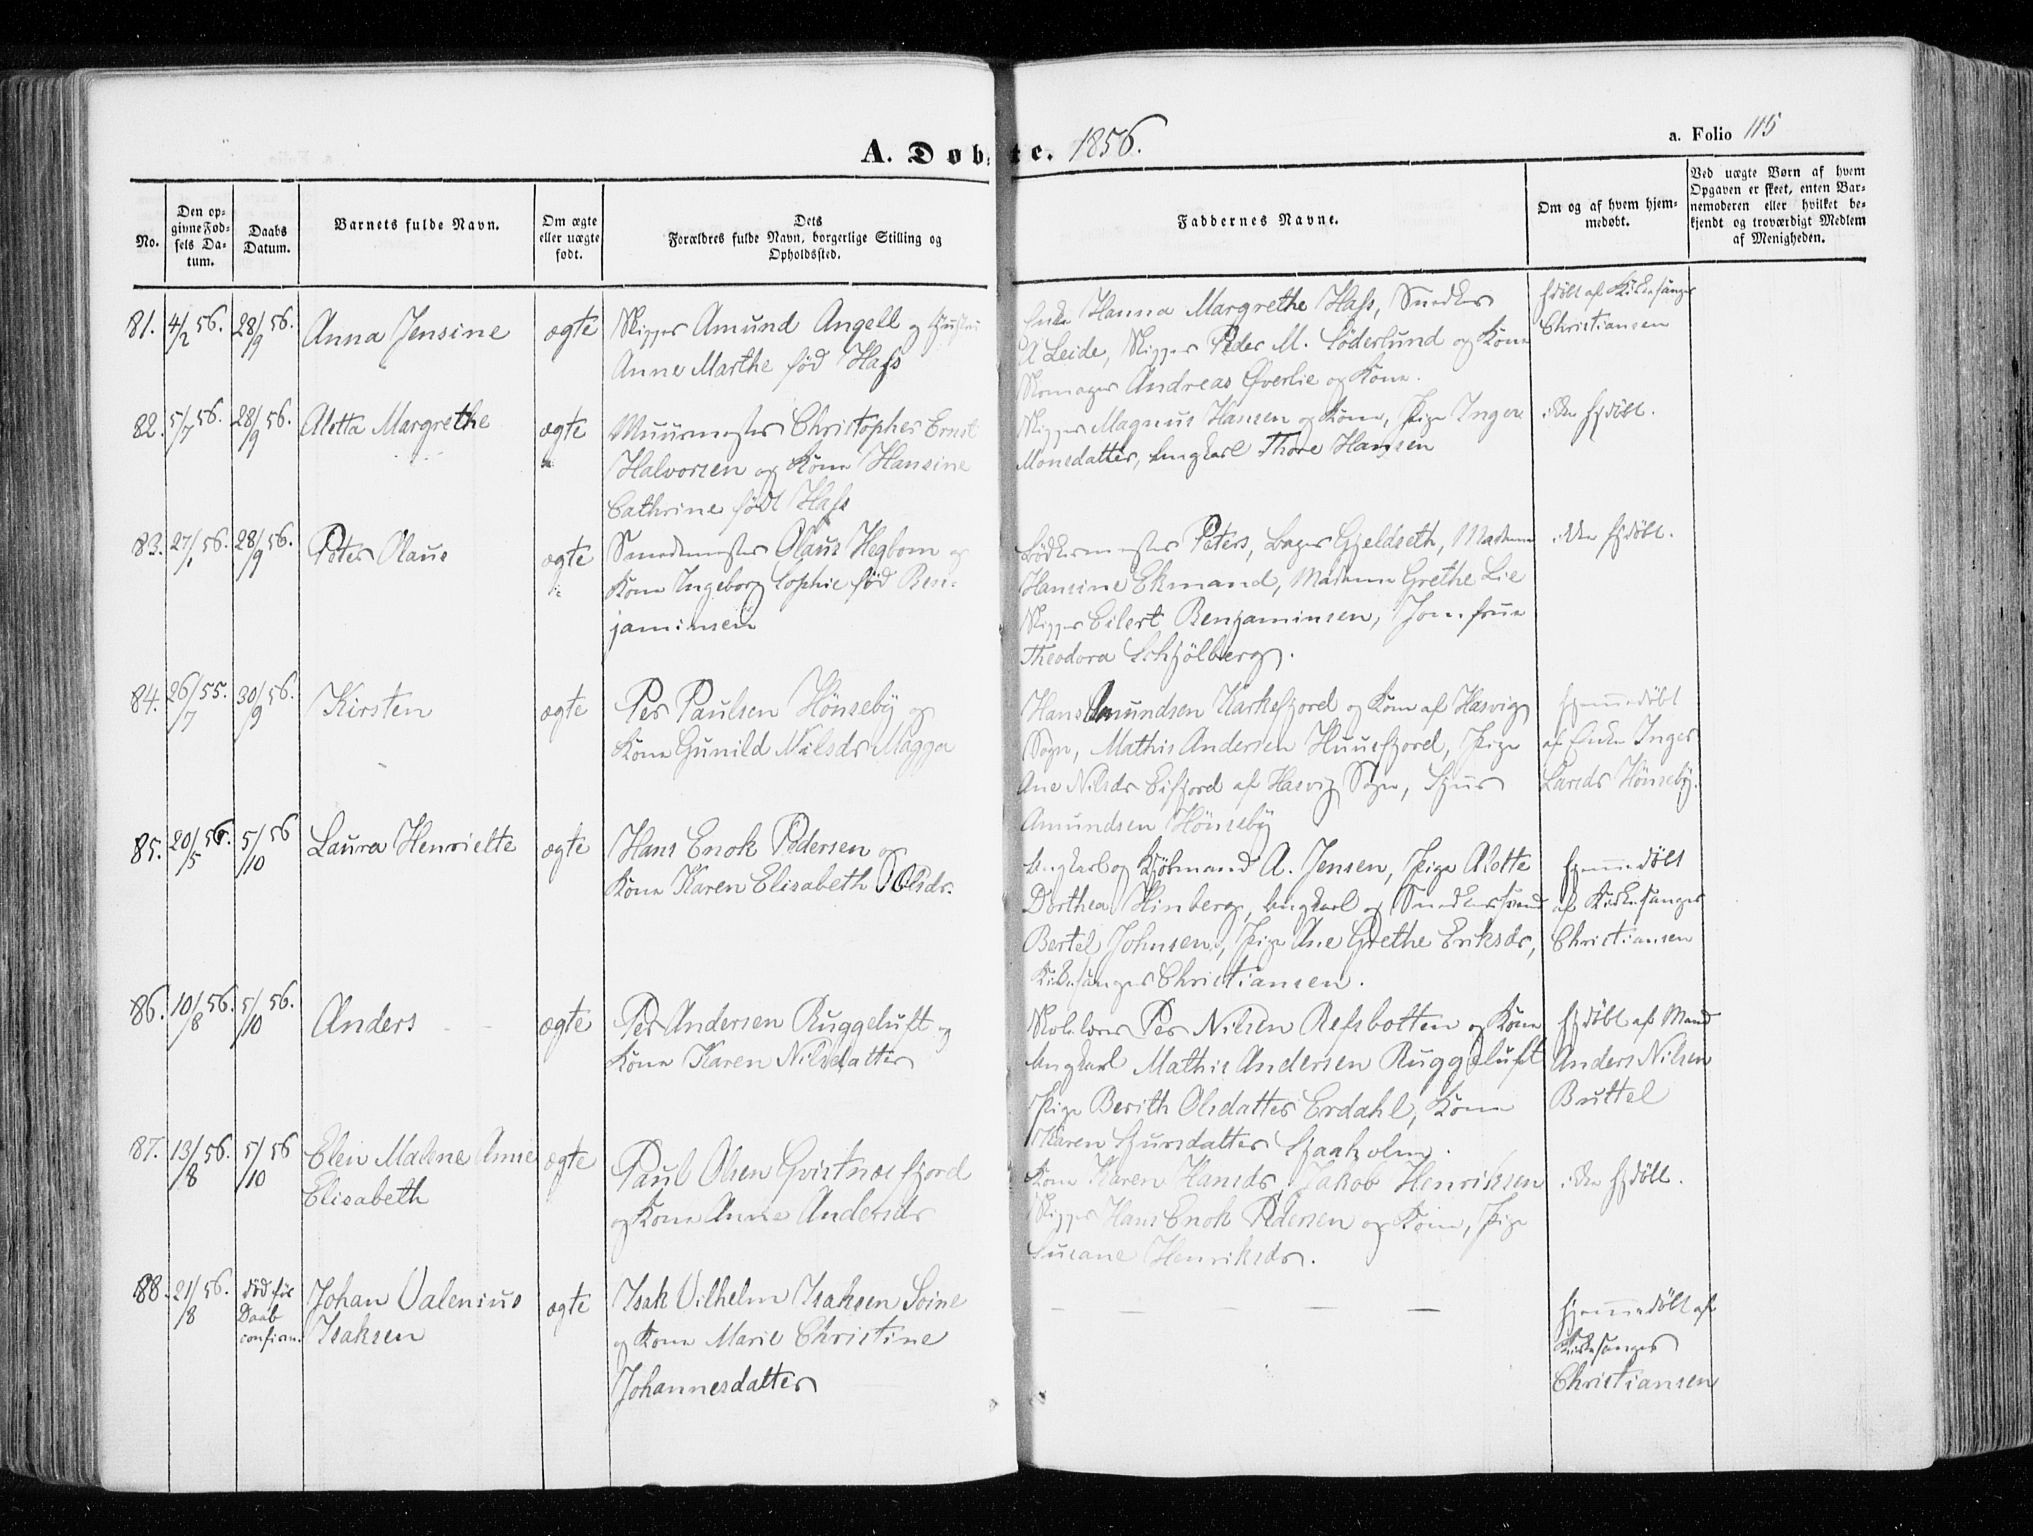 A. Døbte. 1856.
a. Folio 115
No.
Den op-
givne Fød-
sels Da-
tum.
Daabs
Datum.
Barnets fulde Navn.
Om ægte
eller uægte
født.
Dets
Forældres fulde Navn, borgerlige Stilling og
Opholdssted.
Faddernes Navne.
Om og af hvem hjem-
medøbt.
Ved uægte Børn af hvem
Opgaven er skeet, enten Bar-
nemoderen eller hvilket be-
kjendt og troværdigt Medlem
af Menigheden.
81. 4/2 56. 28/9 56. Anna Jensine ægte
Skipper Amund Angell og Hustru
Anne Marthe fød Hass
Enke Hanna Margrethe Hass, Snedker
A Leide, Skipper Peder M. Söderlund og Kone
Skomager Andreas Øverlie og Kone.
hjdøbt af Kirkesanger
Christiansen
82. 5/7 56. 28/9 56. Aletta Margrethe ægte
Muurmester Christopher Ernst
Halvorsen og Kone Hansine
Cathrine født Hass
Skipper Magnus Hansen og Kone, Pige Inger
Monsdatter, Ungkarl Thore Hansen
ikke hjdøbt.
83. 27/1 56. 28/9 56. Peter Olaus ægte
Smedemester Olaus Hegbom og
Kone Ingeborg Sophie fød Ben-
jaminsen
Bödkermester Peters, Bager Gjeldseth, Madame
Hansine Ekmand, Madame Grethe Lie
Skipper Eilert Benjaminsen, Jomfrue
Theodora Schjölberg.
ikke hjdøbt.
84. 26/7 55. 30/9 56. Kirsten ægte
Per Paulsen Hönseby og
Kone Gunild Nilsdr Magga
Hans Amundsen Karkefjord og Kone af Hasvig
Sogn, Mathis Andersen Huusfjord, Pige
Ane Nilsdr Eifjord af Hasvig Sogn, Sjur
Amundsen Hönseby
hjemmedøbt
af Enke Inger
Larsdr Hönseby.
85. 20/5 56. 5/10 56 Laura Henriette ægte
Hans Enok Pedersen og
Kone Karen Elisabeth Olsdr.
Ungkarl og Kjöbmand A. Jensen, Pige Alette
Dorthea Hinberg, Ungkarl og Snedkersvend
Bertel Johnsen, Pige Ane Grethe Eriksdr,
Kirkesanger Christiansen.
hjemmedöbt
af Kirkesanger
Christiansen
86. 10/8 56. 5/10 56. Anders ægte
Per Andersen Ruggeluft og
Kone Karen Nilsdatter
Skolelærer Per Nilsen Refsbotten og Kone
Ungkarl Mathis Andersen Ruggeluft
Pige Berith Olsdatter Erdahl, Kone
Karen Sjursdatter Sjaaholm.
hjdøbt af Mand
Anders Nilsen
Buttel
87. 13/8 56. 5/10 56 Elen Malene Anne
Elisabeth
ægte
Paul Olsen Qvistnæsfjord
og Kone Anne Andersdr
Kone Karen Hansdr, Jakob Henriksen
Skipper Hans Enok Pedersen og Kone, Pige
Susane Henriksdr.
ikke hjdöbt.
88. 21/8 56. död før
Daab
confirm.
Johan Valenius
Isaksen
ægte
Isak Vilhelm Isaksen Soine
og Kone Marie Christine
Johannesdatter
— — — — —
hjemmedøbt af
Kirkesanger
Christiansen